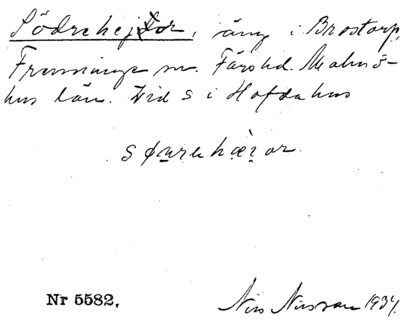 Södrehejdor, äng i Brostorp,
Frenninge sn. Färshd. Malmö-
hus län. Vid S i Hofdahus
sφurehæ̣ꭈ̣or.
Nr 5582. Nils Nilsson 1934.